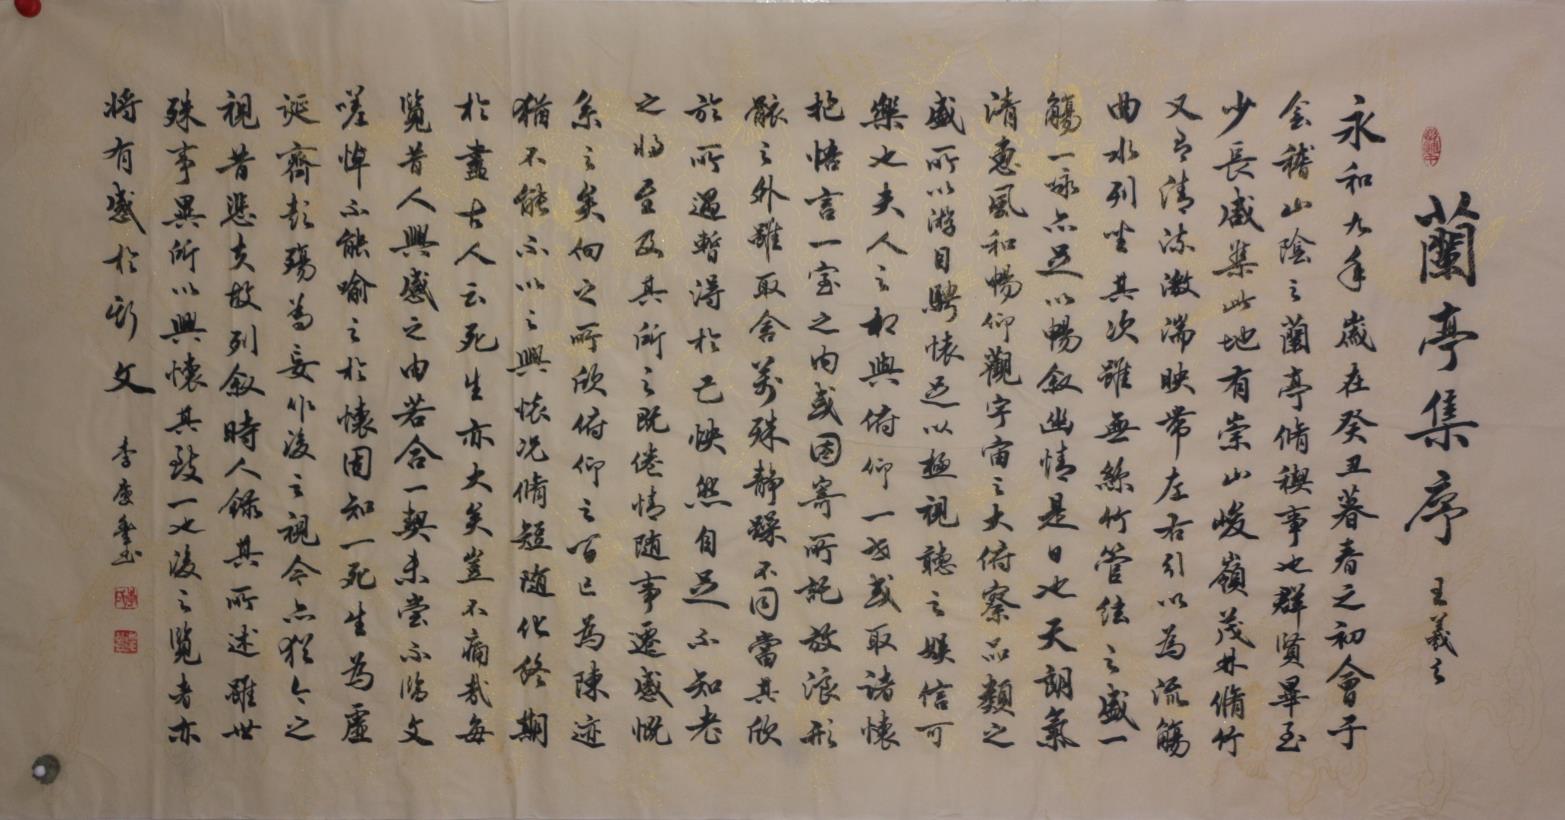 蘭亭集序 王羲之
永和九年歲在癸丑暮春之初會于
会稽山陰之蘭亭脩禊事也群賢畢至
少長咸集此地有崇山峻嶺茂林脩竹
又有清流激湍映帶左右引以為流觴
曲水列坐其次雖無絲竹管絃之盛一
觴一詠亦足以暢敘幽情是日也天朗氣
清惠風和暢仰觀宇宙之大俯察品類之
盛所以游目騁懷足以極視聽之娛信可
樂也夫人之相與俯仰一世或取諸懷
抱悟言一室之内或因寄所託放浪形
骸之外雖取舍萬殊静躁不同當其欣
於所遇暫得於己怏然自足不知老
之將至及其所之既倦情随事遷感慨
系之矣向之所欣俯仰之間已為陳迹
猶不能不以之興懷况脩短随化終期
於盡古人云死生亦大矣豈不痛哉每
覽昔人興感之由若合一契未嘗不臨文
嗟悼不能喻之於懷固知一死生為虛
誕齊彭殤為妄作後之視今亦猶今之
視昔悲夫故列敘時人錄其所述雖世
殊事異所以興懷其致一也後之覽者亦
將有感於斯文 李